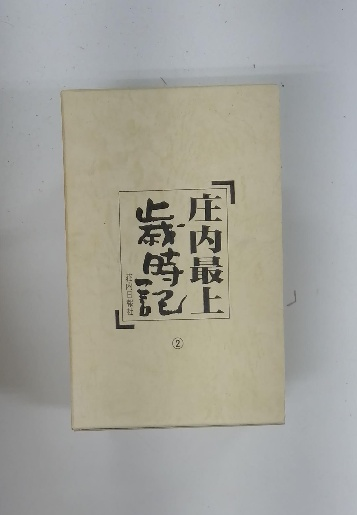 庄内最上
歳時記
荘内日報社
②